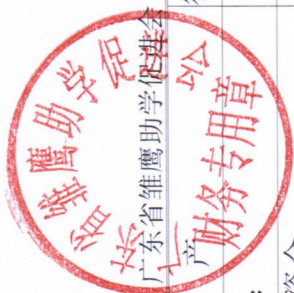 广东省雏鹰助学促进会
财务专用章
广东省雏鹰助学促进会
产
资金